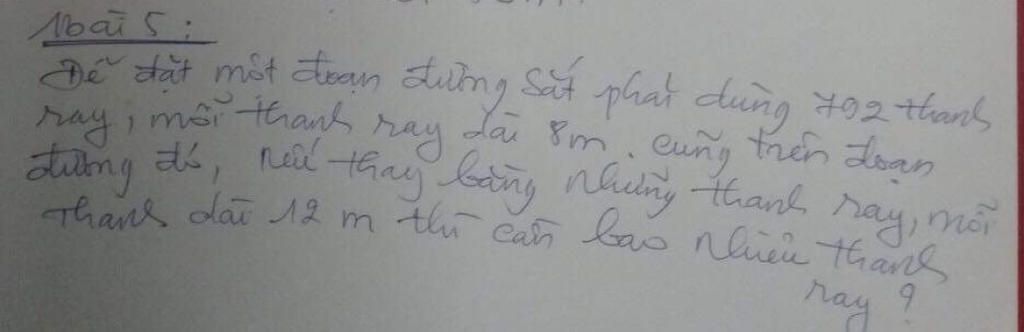 Bài 5 :
Để đặt một đoạn đường sắt phải dùng 792 thanh
ray, mỗi thanh ray dài 8m. cũng trên đoạn
đường đó, nếu thay bằng những thanh ray, mỗi
thanh dài 12 m thì cần bao nhiêu thanh
ray ?